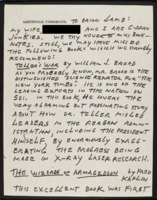 ADDITIONAL COMMENTS: TO BRIAN LAMB:
MY WIFE AND I ARE C-SPAN
JUNKIES. WE TRY NEVER TO MISS BOOK-
NOTES. STILL, WE MAY HAVE MISSED
THE FOLLOWING BOOKS WHICH WE EARNESTLY
RECOMMEND:
TELLER'S WAR BY WILLIAM J. BROAD
AS YOU PROBABLY KNOW, MR. BROAD IS THE
DISTINGUISHED SCIENCE REPORTER FOR "THE
NEW YORK TIMES." HE IS ONE OF THE
LEADING EXPERTS IN THE NATION ON
SDI. IN THIS BOOK, HE TELLS THE
VERY ALARMING BUT FASCINATING STORY
ABOUT HOW DR. TELLER MISLED
LEADERS IN THE REAGAN ADMIN-
ISTRATION, INCLUDING THE PRESIDENT
HIMSELF, BY ENORMOUSLY EXAG-
GERATING THE PROGRESS BEING
MADE IN X-RAY LASER RESEARCH.
THE WIZARDS OF ARMAGEDDON BY FRED
KAPLAN
THIS EXCELLENT BOOK WAS FIRST